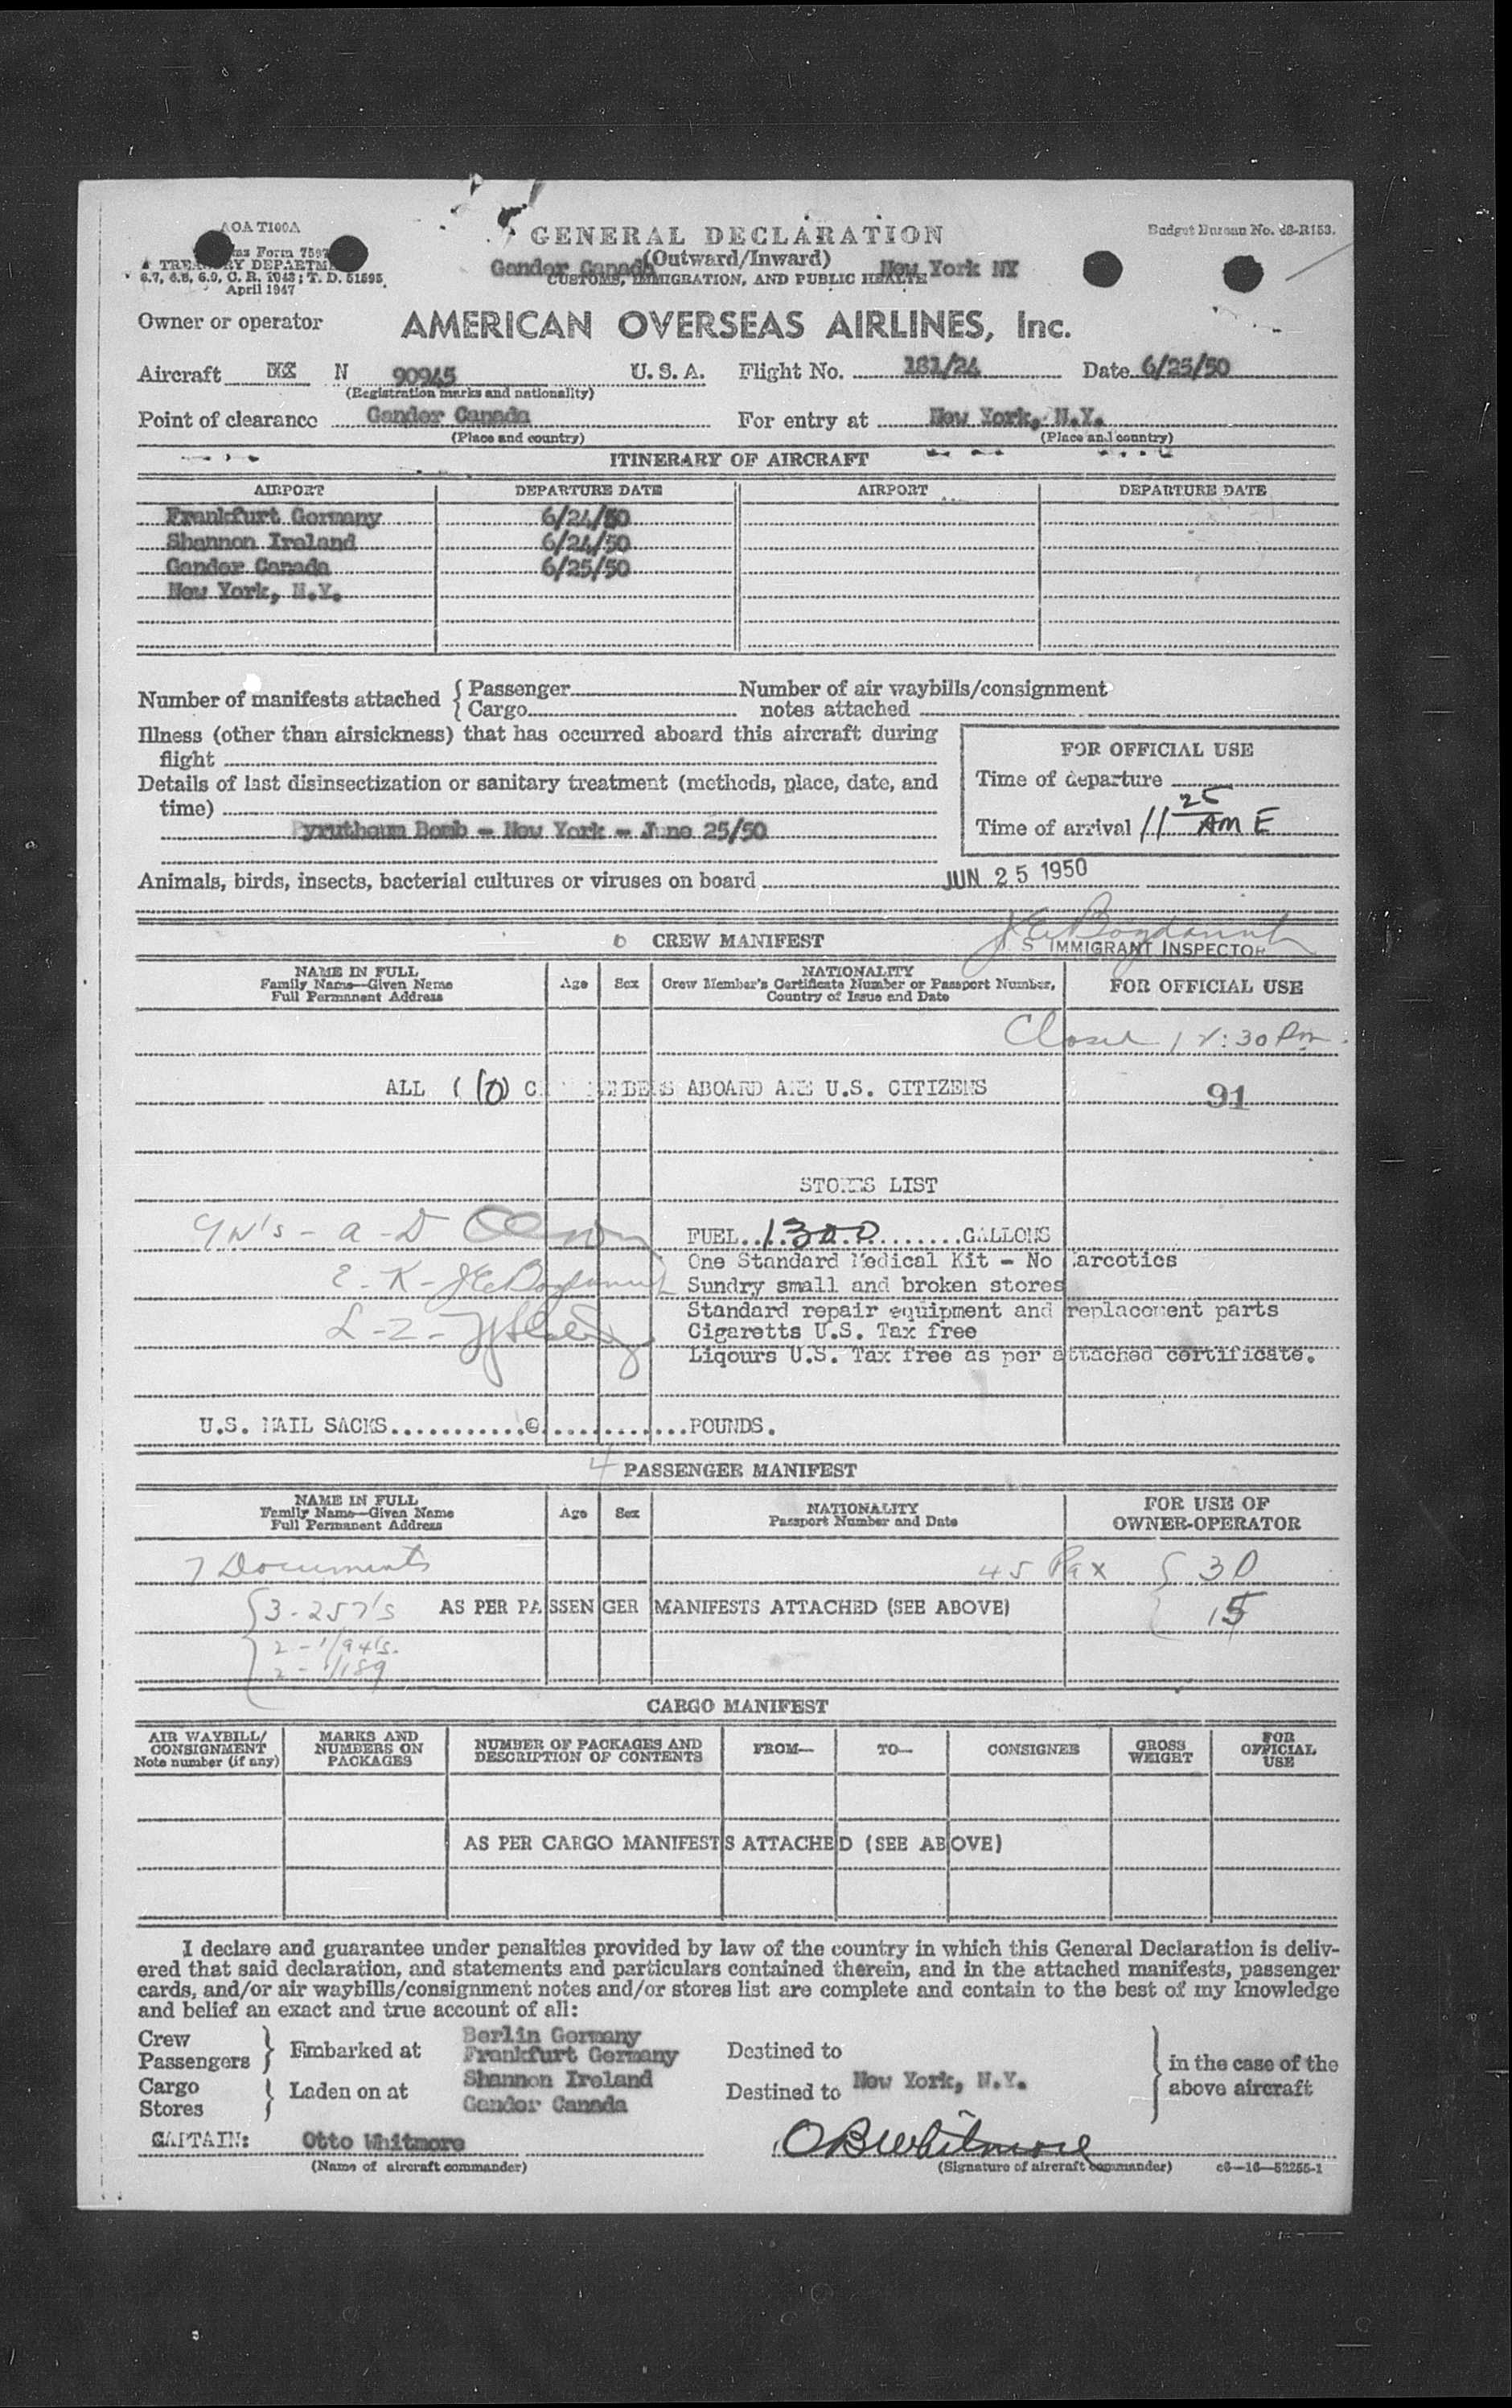 AOA T100A
GENERAL DECLARATION
Budget Bureau No. 48-R153.
Customs Form 7507
TREASURY DEPARTMENT
(Outward/Inward)
Gander Canada New York NY
6.7, 6.8, 6.9, C. R. 1943; T. D. 51595
CUSTOMS, IMMIGRATION, AND PUBLIC HEALTH
April 1947
Owner or operator AMERICAN OVERSEAS AIRLINES, Inc.
Aircraft N 90945 U. S. A. Flight No. 181/24 Date 6/25/50
(Registration marks and nationality)
Point of clearance Gander Canada For entry at New York, N.Y.
(Place and country) (Place and country)
ITINERARY OF AIRCRAFT
AIRPORT DEPARTURE DATE AIRPORT DEPARTURE DATE
Frankfurt Germany 6/24/50
Shannon Ireland 6/24/50
Gander Canada 6/25/50
New York, N.Y.
Number of manifests attached { Passenger Number of air waybills/consignment
{ Cargo notes attached
Illness (other than airsickness) that has occurred aboard this aircraft during
flight
Details of last disinsectization or sanitary treatment (methods, place, date, and
time)
Pyrutheum Bomb - New York - June 25/50
FOR OFFICIAL USE
Time of departure
Time of arrival 11 25 AM E
Animals, birds, insects, bacterial cultures or viruses on board JUN 25 1950
CREW MANIFEST
IMMIGRANT INSPECTOR
NAME IN FULL
Family Name—Given Name
Full Permanent Address
Age Sex
NATIONALITY
Crew Member's Certificate Number or Passport Number,
Country of Issue and Date
FOR OFFICIAL USE
Closed 12:30 Pm.
ALL (10) C MBERS ABOARD ARE U.S. CITIZENS 91
STORES LIST
FUEL..1300.......GALLONS
One Standard Medical Kit - No Narcotics
Sundry small and broken stores
Standard repair equipment and replacement parts
Cigaretts U.S. Tax free
Liqours U.S. Tax free as per attached certificate.
U.S. MAIL SACKS............@.............POUNDS.
4 PASSENGER MANIFEST
NAME IN FULL
Family Name—Given Name
Full Permanent Address
Age Sex
NATIONALITY
Passport Number and Date
FOR USE OF
OWNER-OPERATOR
7 Documents 45 Pax { 30
{ 3-257's AS PER PASSENGER MANIFESTS ATTACHED (SEE ABOVE) 15
2-1/94's.
2-1/189
CARGO MANIFEST
AIR WAYBILL/
CONSIGNMENT
Note number (if any)
MARKS AND
NUMBERS ON
PACKAGES
NUMBER OF PACKAGES AND
DESCRIPTION OF CONTENTS
FROM—
TO—
CONSIGNEE
GROSS
WEIGHT
FOR
OFFICIAL
USE
AS PER CARGO MANIFESTS ATTACHED (SEE ABOVE)
I declare and guarantee under penalties provided by law of the country in which this General Declaration is deliv-
ered that said declaration, and statements and particulars contained therein, and in the attached manifests, passenger
cards, and/or air waybills/consignment notes and/or stores list are complete and contain to the best of my knowledge
and belief an exact and true account of all:
Crew
Passengers } Embarked at
Berlin Germany
Frankfurt Germany
Destined to
Cargo
Stores } Laden on at
Shannon Ireland
Gander Canada
Destined to New York, N.Y.
} in the case of the
above aircraft
CAPTAIN: Otto Whitmore OBWhitmore
(Name of aircraft commander) (Signature of aircraft commander) c6—16—52255-1